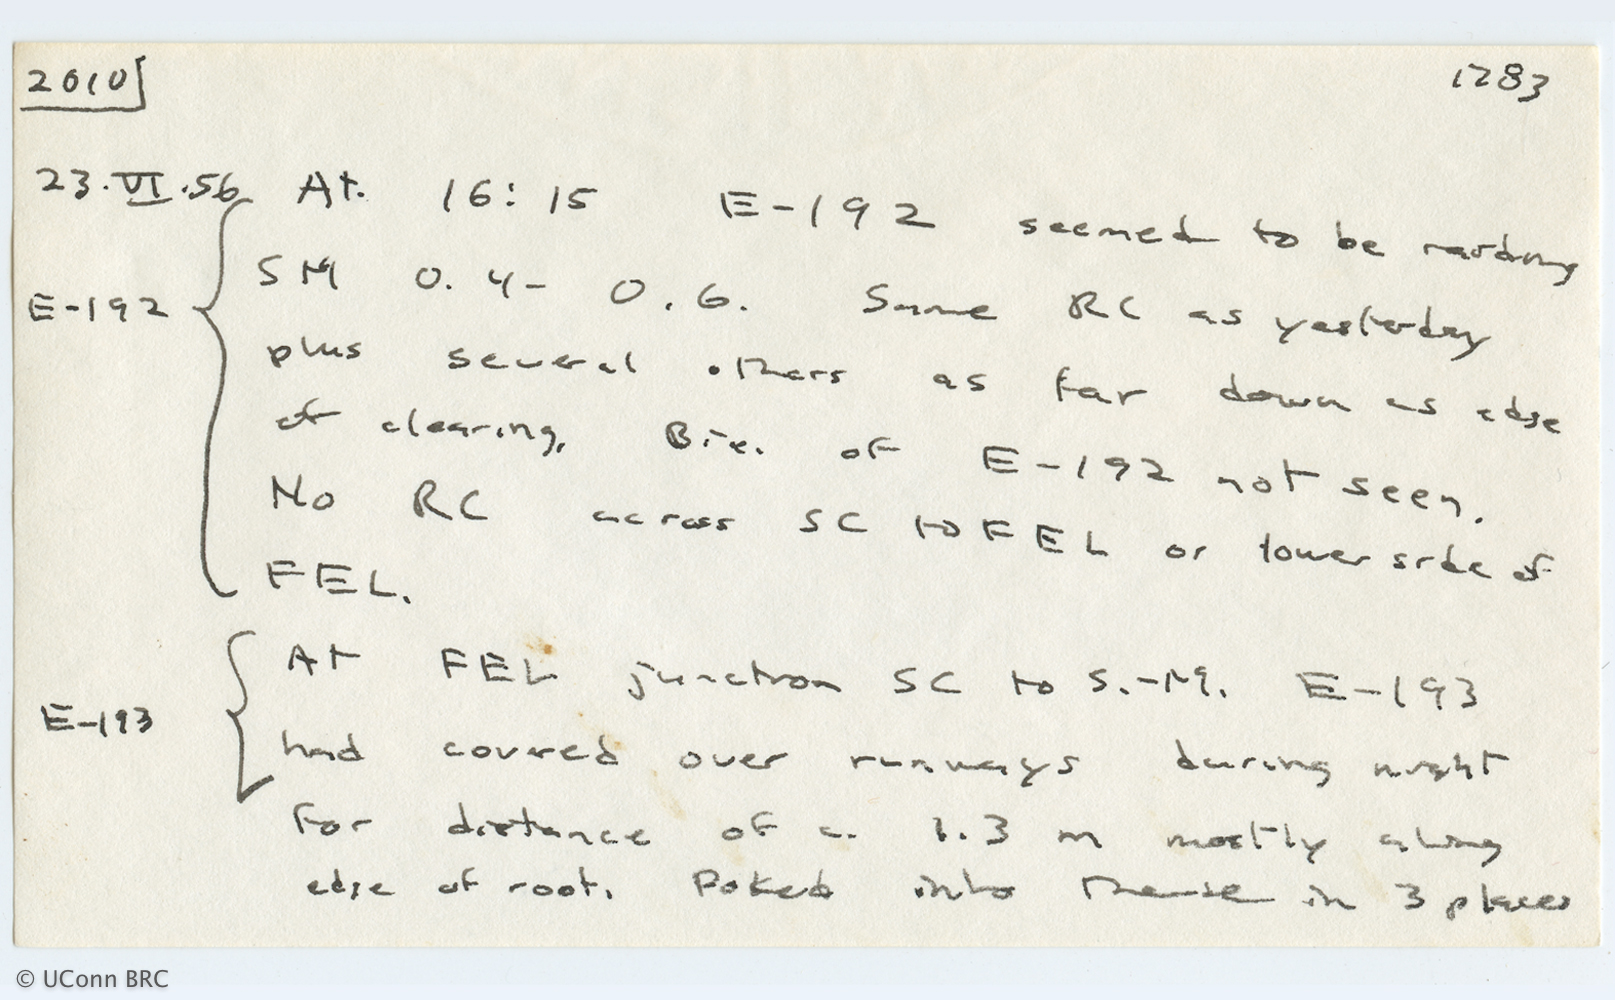 2010 1283
23.VI.56 At 16:15 E-192 seemed to be raiding
E-192 SM 0.4-0.6. Same RC as yesterday
plus several others as far down as edge
of clearing. Biv. of E-192 not seen.
No RC across SC to FEL or lower side of
FEL.
At FEL junction SC to S.-M. E-193
E-193 had covered over runways during night
for distance of c. 1.3 m mostly along
edge of root. Poked into these in 3 places
© UConn BRC